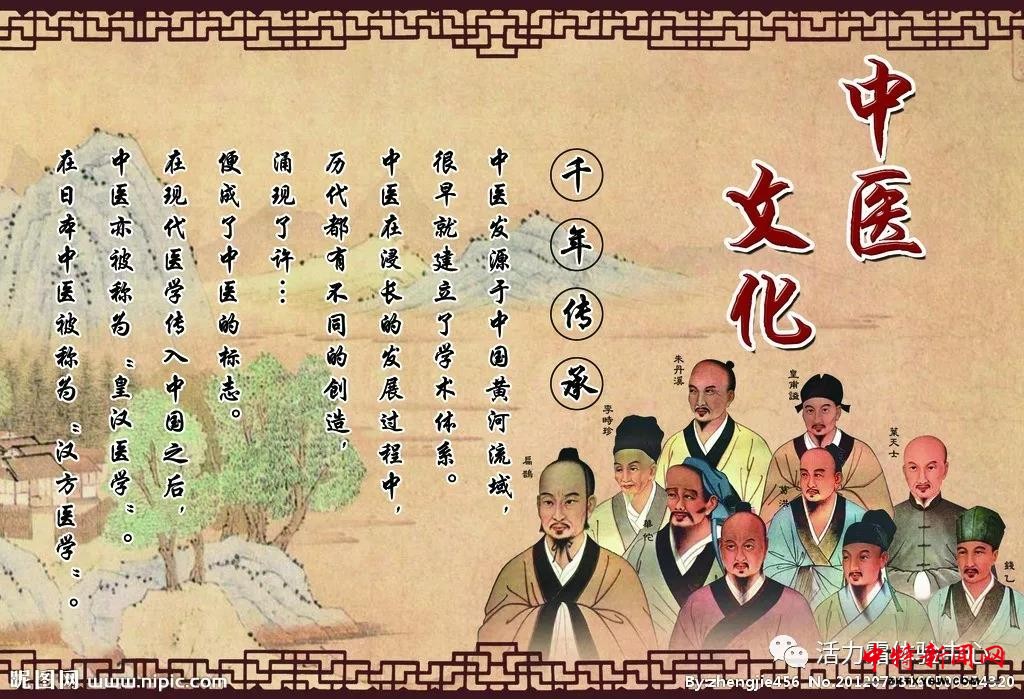 中医
文化
千年传承
中医发源于中国黄河流域，
很早就建立了学术体系。
中医在漫长的发展过程中，
历代都有不同的创造，
涌现了许…
便成了中医的标志。
在现代医学传入中国之后，
中医亦被称为“皇汉医学”。
在日本中医被称为“汉方医学”。
朱丹溪
皇甫謐
李時珍
葉天士
扁鵲
葛洪
華佗
錢乙
昵图网 www.nipic.com
中特新闻网